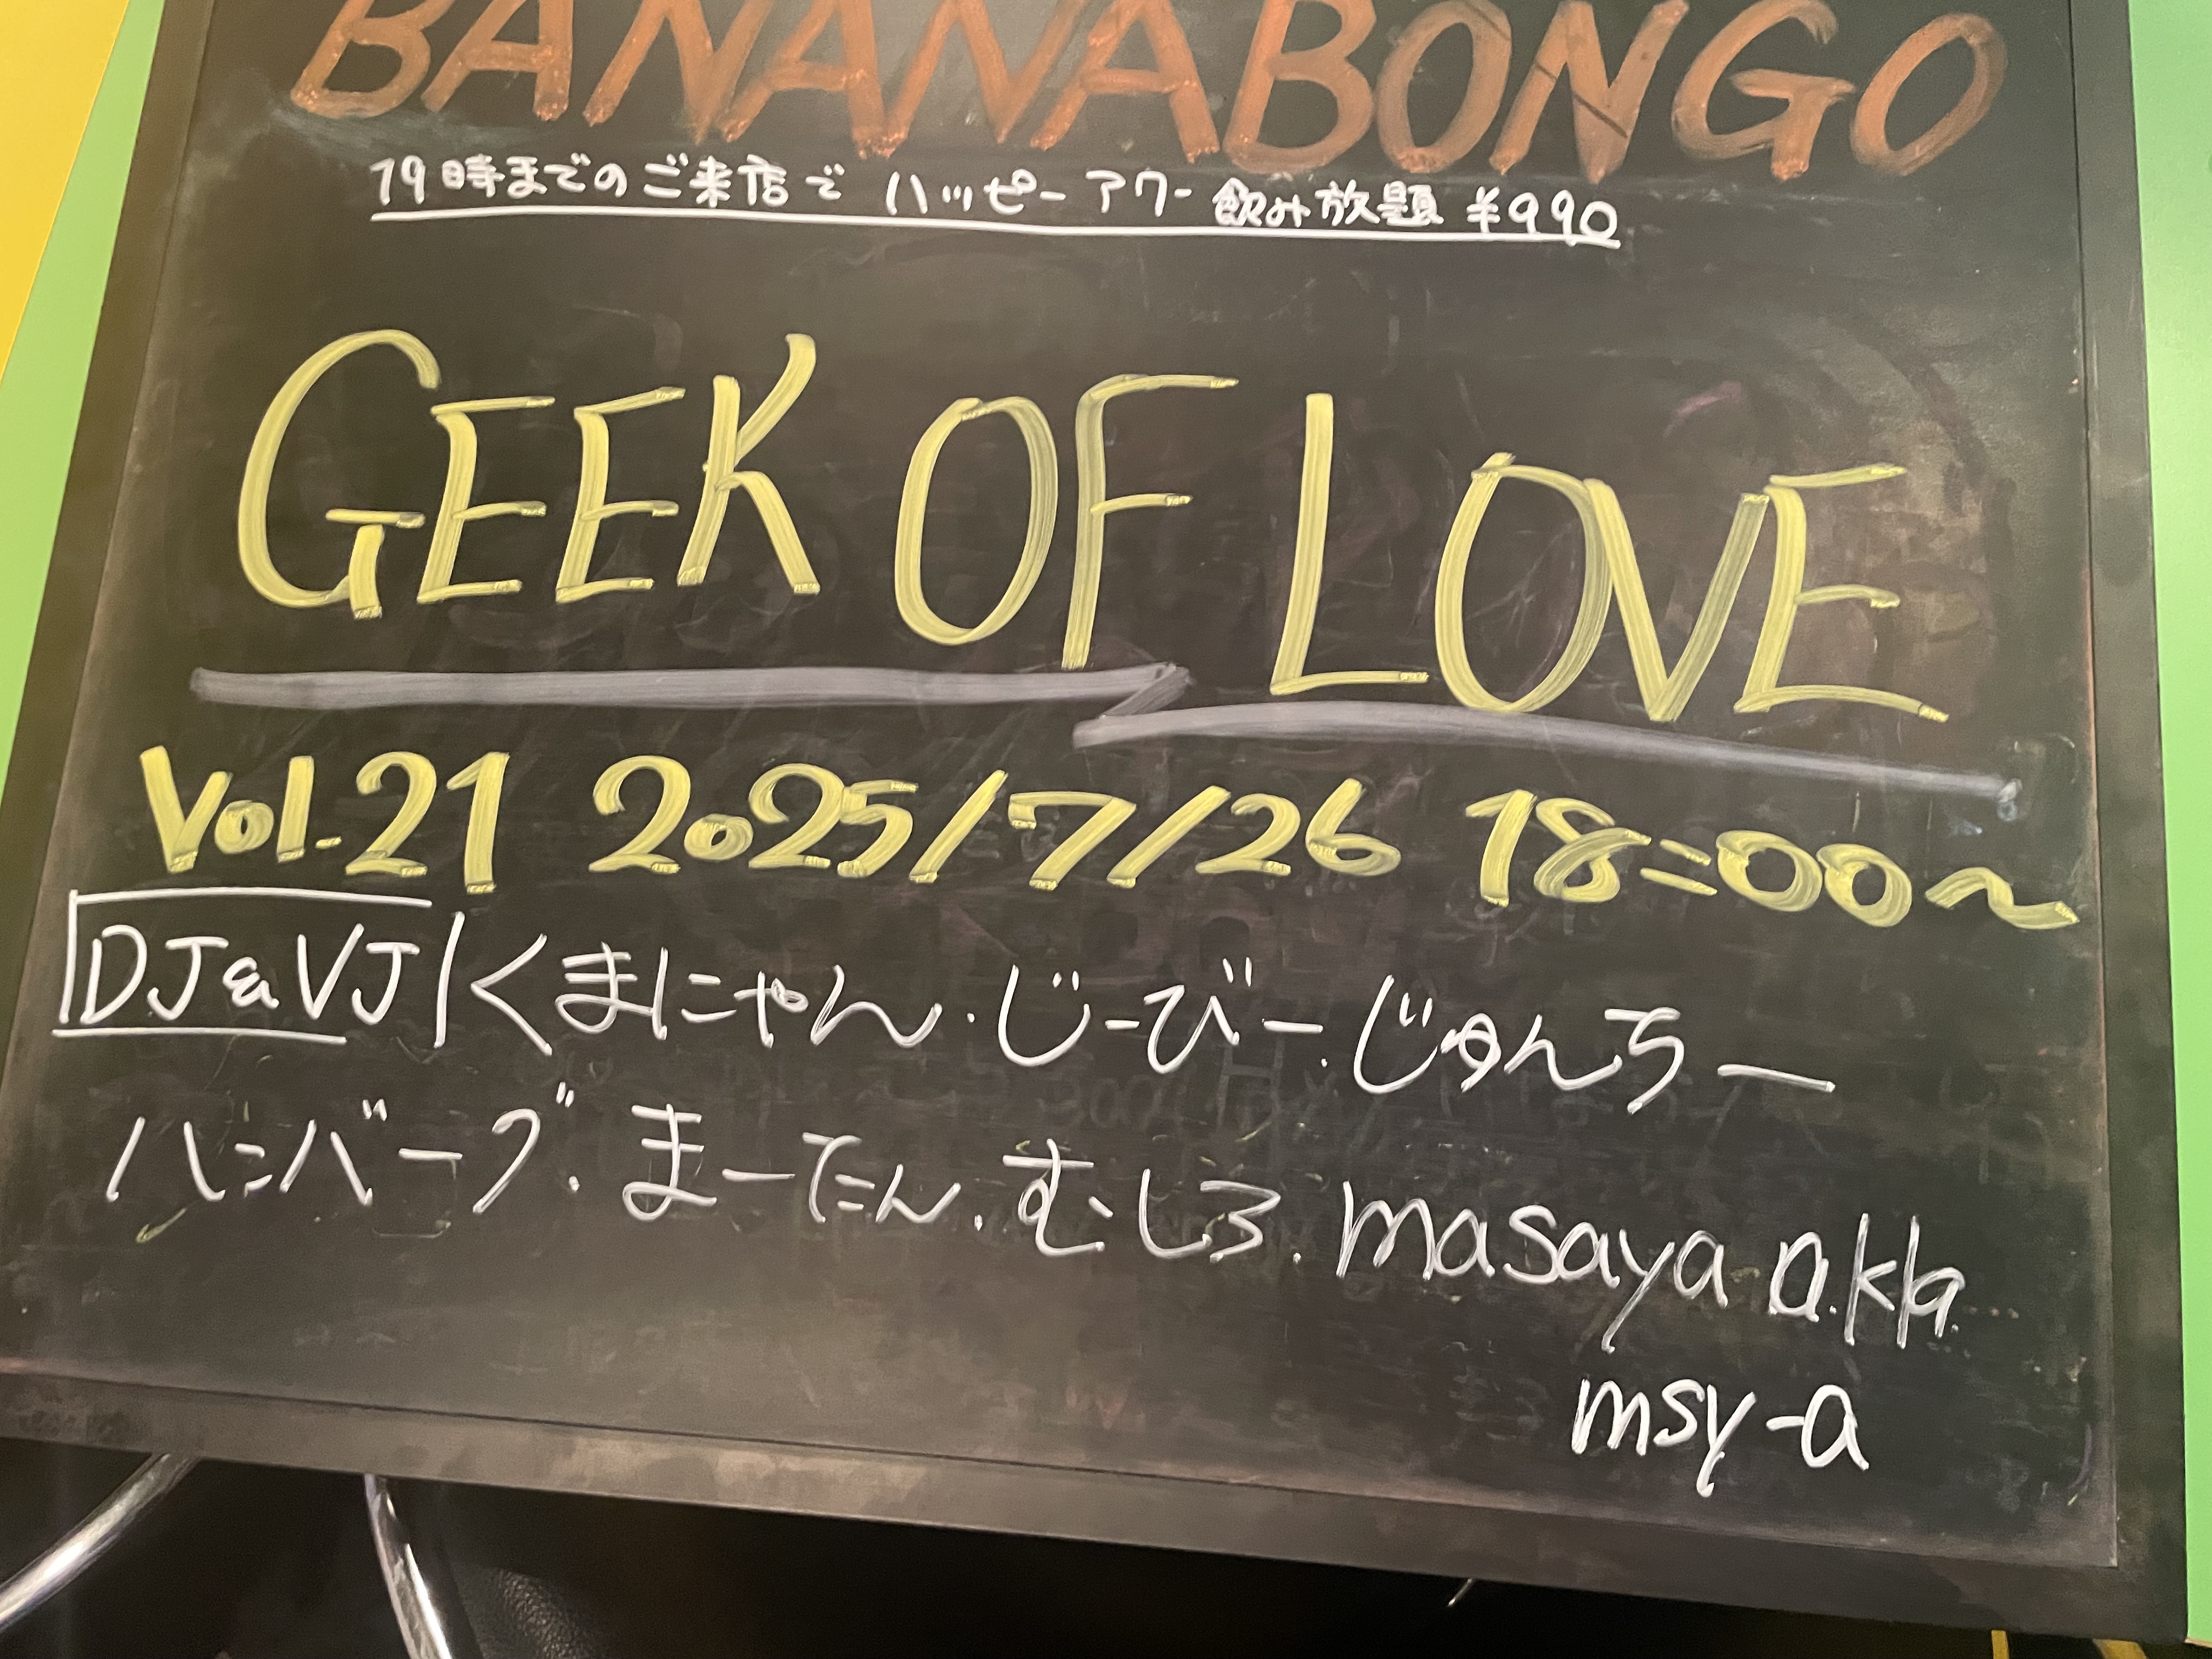 BANANABONGO
19時までのご来店で ハッピーアワー 飲み放題 ¥990
GEEK OF LOVE
Vol.21 2025/7/26 18:00~
DJ&VJ くまにゃん.じーびー.じゅんちー
ハンバーグ.まーてん.むしろ.masaya a.k.a
msy-a